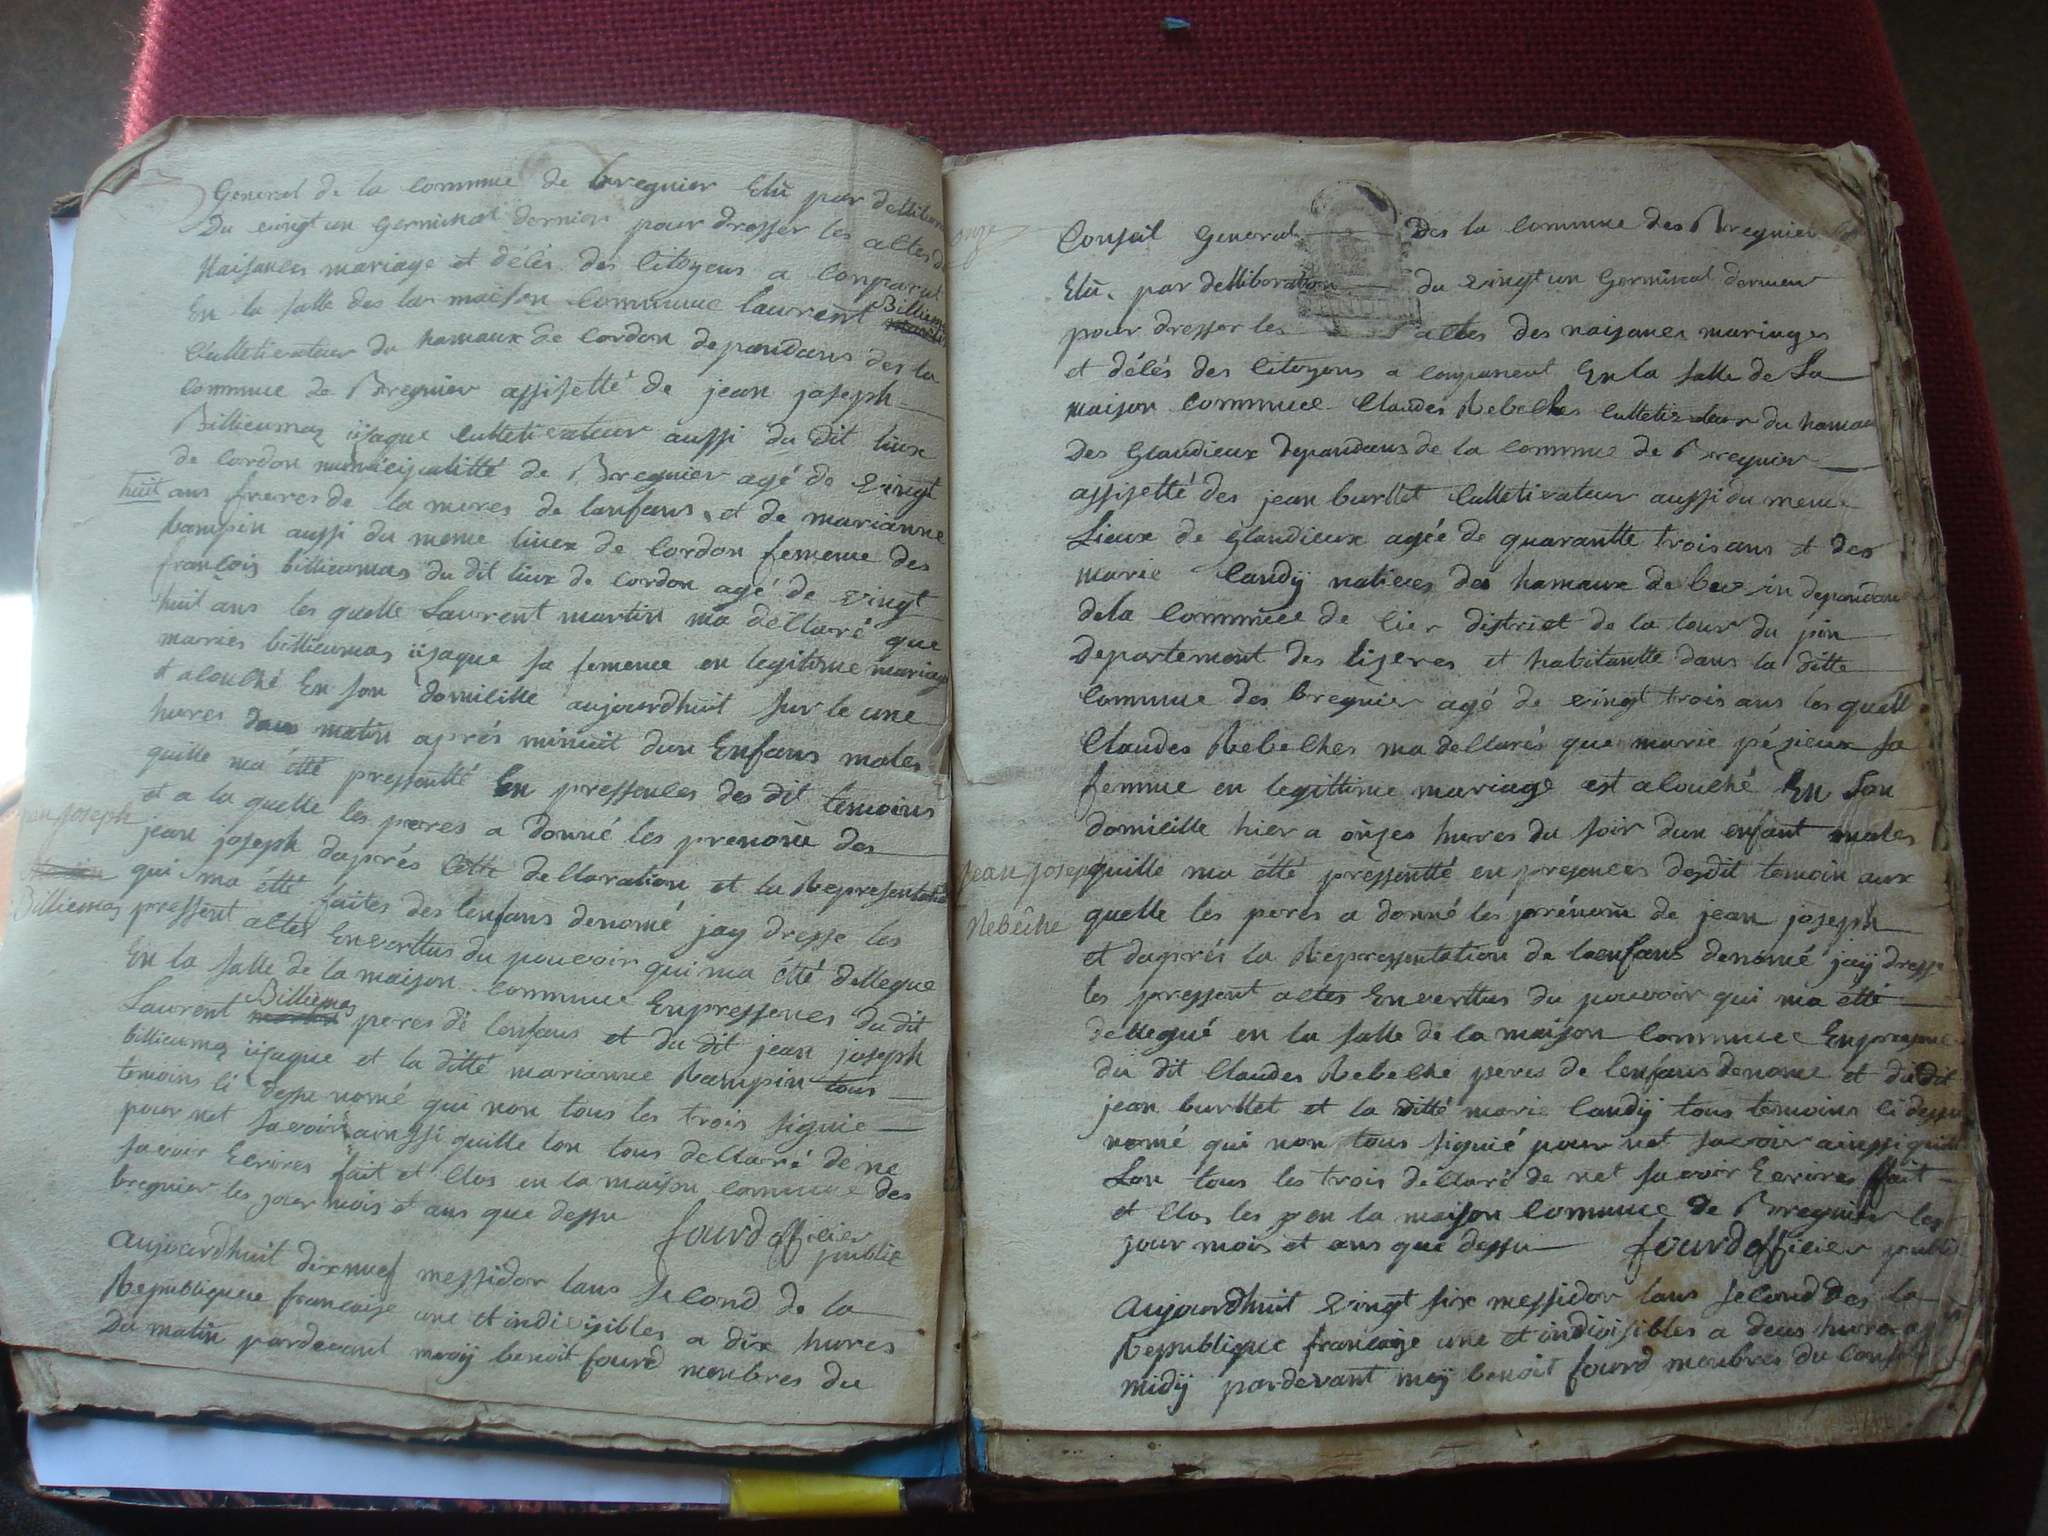 General de la Commune de bregnier Elû par delliberation
Du vingt un germinal dernier pour dresser les actes de
Naisances mariage et décés des Citoyens a Comparut
En la salle des la maison Commune laurent Billiemas
Cultetivateur du hamaux de Cordon dependans des la
Commune de Bregnier assisetté de jean joseph
Billieumaz iisaque Cultetivateur aussi du dit liux
de Cordon municipalitté de Bregnier agé de vingt
huit ans freres de la meres de lenfans et de marianne
Rampin aussi du meme liuex de Cordon femme des
françois billieumas du dit liux de Cordon agé de vingt
huit ans les quelle Laurent martin ma déllaré que
maries billieumas iisaque sa femenne en legitime mariage
et alouché En son domicille aujourdhuit sur le une
hures matin aprés minuit dun Enfans males
quille ma étté pressentté En pressences des dit temoins
et a la quelle les peres a donné les prenoin des
jean joseph
jean joseph daprés Cette dellaration et la Representation
qui ma étté faites des lenfans denomé jay dresse les
Billiemas
pressent actes En verttus du pouvoir qui ma étté dellegue
En la salle de la maison Commune Enpressences du dit
Laurent Billiemas peres de lenfans et du dit jean joseph
billieumaz iisaque et la ditté marianne Rampin tous
temoins Ci desse nomé qui non tous les trois signie
pour net savoir ainssi quille lon tous dellaré de ne
savoir Ecrires fait et Clos en la maison Commune des
bregnier les jour mois et ans que dessu
fourd officier
publie
Aujourdhuit dix neuf messidor lans second de la
Republique francaise une et indivisibles a dix hures
Du matin pardevant moÿ benoit fourd membres du
onze
Conseil General Des la Commune des Bregnier
Elû par delliberation du vingt un Germinal dernier
pour dresser les actes des naisances mariages
et décés des Citoyens a Comparut En la salle de La
maison Commune Claudes Rebeches Culttivateur du hamau
Des Glandieux dependans de la Commune de Bregnier
assisetté des jean burllet Cultetivateur aussi du meme
Lieux de Glandieux agée de quarantte trois ans et des
marie Candÿ natieves des hamaux de dependans
de la Commune de Cier district de la tour du pin
Departement des lizeres et habitantte dans la ditte
Commune des bregnier agé de vingt trois ans les quell
Claudes Rebeches ma dellarés que marie pézieux sa
femme en legittime mariage est alouché En son
domicille hier a onzes hures du soir dun enfant males
Jean Joseph
quille ma étté pressentté en presences des dit temoin aux
Rebêche
quelle les peres a donné les prénoin de jean joseph
et daprés la Representation de lenfans denomé jaÿ dresse
les pressent actes En verttus du pouvoir qui ma étté
dellegué en la salle de la maison Commune En presence
du dit Claudes Rebeche peres de lenfans denome et du dit
jean burllet et la ditté marie Candÿ tous temoins Ci dessu
nomé qui non tous signié pour net savoir ainssi quille
Lon tous les trois déllaré de net savoir Ecrires fait
et Clos les en la maison Commune de Bregnier les
jour mois et ans que dessu fourd officier public
Aujourdhuit vingt six messidor lans second des la
Republique francaise une et indivisibles a deus hures a
midÿ pardevant moÿ benoit fourd membres du Conseil